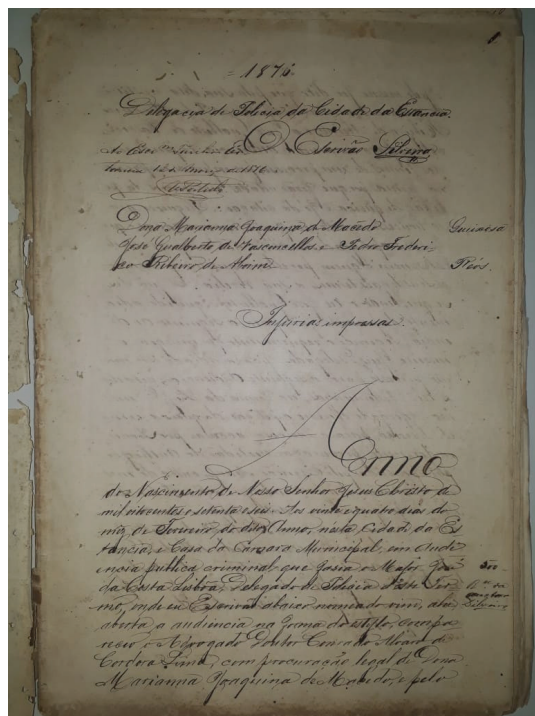 1
= 1876.
Delegacia de Policia da Cidade da Estancia.
O Escrivão Silvino
12 de Março de 1876
Dona Marianna Joaquina de Macêdo Queixosa
José Gualberto de Vasconcellos e Pedro Frederi-
co Ribeiro de Réos.
Injurias impressas.
Anno
do Nascimento de Nosso Senhor Jesus Christo de
mil oitocentos e setenta e seis. Aos vinte e quatro dias do
mez de Fevereiro do dito Anno, nesta Cidade da Es-
tancia, e Casa da Camara Municipal, em audi-
encia publica criminal que fasia o Major
da Costa Lisbôa, Delegado de Policia d'este Ter-
mo, onde eu Escrivão abaixo nomeado vim, ahi
aberta a audiencia na forma do estylo, compa-
receu o Advogado Doutor Conrado Alvaro de
Cordova Lima, com procuração legal de Dona
Marianna Joaquina de Macedo, e pelo